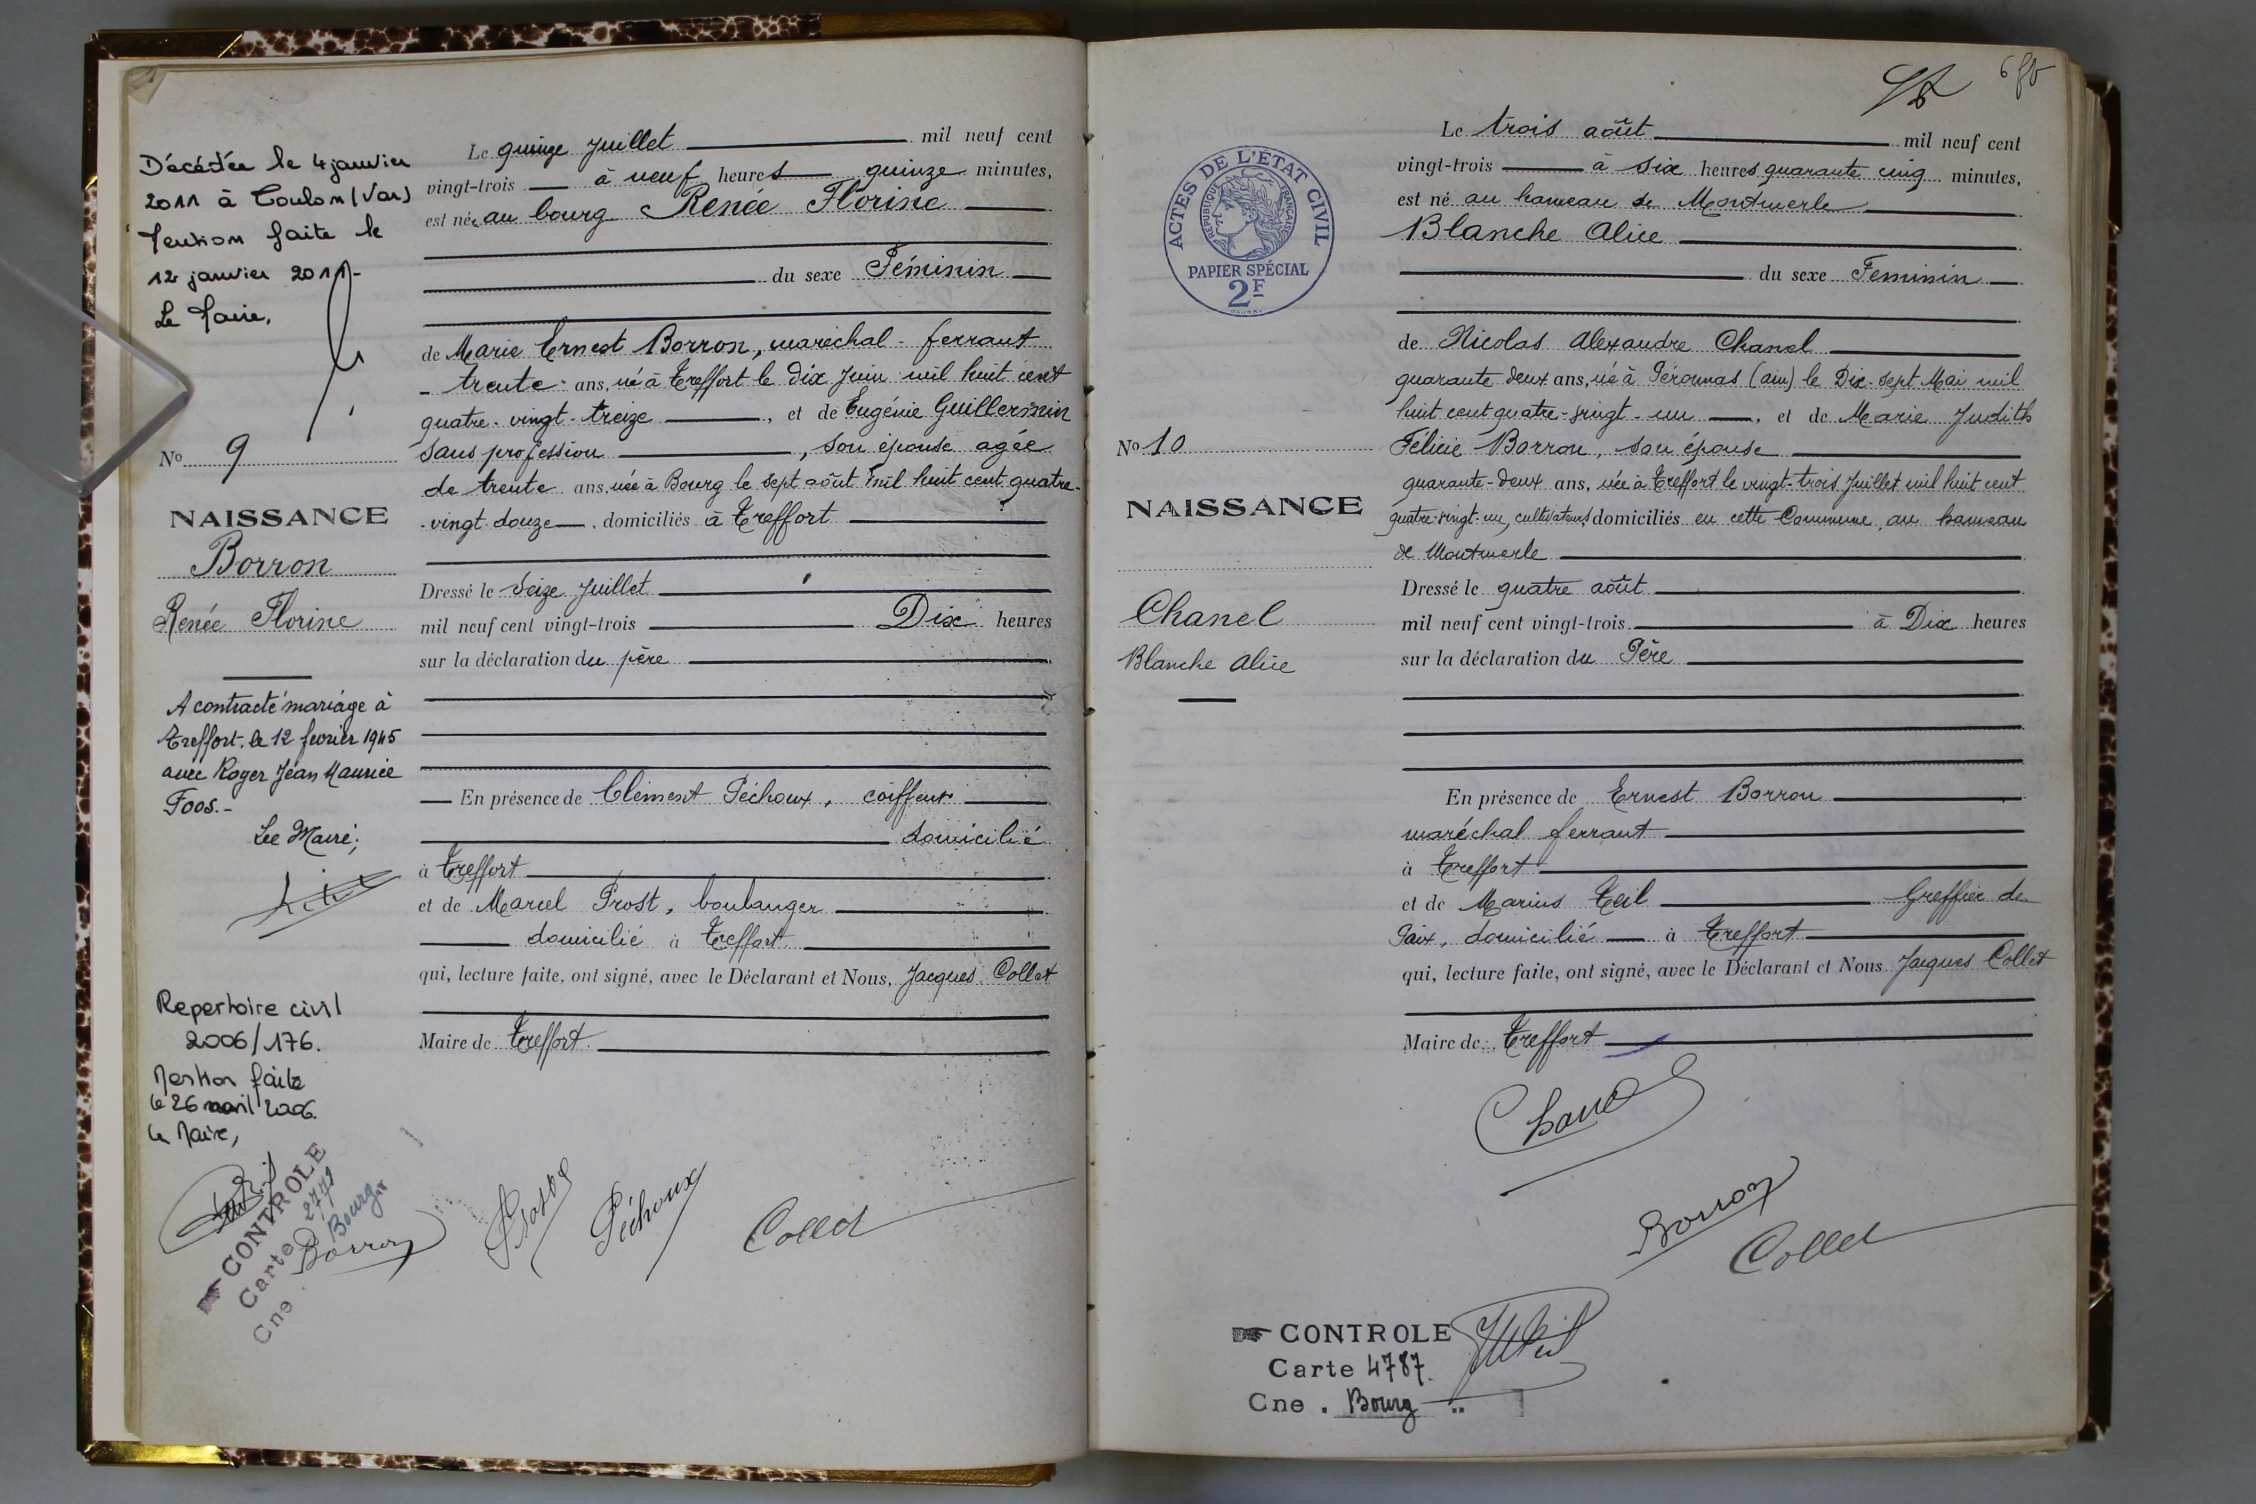 Décédée le 4 janvier
2011 à Toulon (Var)
Mention faite le
12 janvier 2011-
Le Maire,
No 9
NAISSANCE
Borron
Renée Florine
A contracté mariage à
Treffort, le 12 février 1945
avec Roger Jean Maurice
Foos.-
Le Maire,
Repertoire civil
2006/176.
Mention faite
le 26 avril 2006.
Le Maire,
CONTROLE
Carte 2791
Cne. Bourg
Le quinze Juillet mil neuf cent
vingt-trois à neuf heures quinze minutes,
est née au bourg Renée Florine
du sexe Féminin
de Marie Ernest Borron, maréchal-ferrant
trente ans, né à Treffort le dix Juin mil huit cent
quatre-vingt-treize, et de Eugénie Guillermin
sans profession, son épouse agée
de trente ans, née à Bourg le sept août mil huit cent quatre-
vingt douze, domiciliés à Treffort
Dressé le Seize Juillet
mil neuf cent vingt-trois Dix heures
sur la déclaration du père
En présence de Clément Péchoux, coiffeur
domicilié
à Treffort
et de Marcel Prost, boulanger
domicilié à Treffort
qui, lecture faite, ont signé, avec le Déclarant et Nous, Jacques Collet
Maire de Treffort.
Borron
Prost
Péchoux
Collet
ACTES DE L'ETAT CIVIL
REPUBLIQUE FRANÇAISE
PAPIER SPÉCIAL
2F
No 10
NAISSANCE
Chanel
Blanche Alice
Le trois août mil neuf cent
vingt-trois à six heures quarante cinq minutes,
est né au hameau de Montmerle
Blanche Alice
du sexe Feminin
de Nicolas Alexandre Chanel
quarante deux ans, né à Péronnas (ain) le Dix-sept Mai mil
huit cent quatre-vingt-un, et de Marie Judith
Félicie Borron, son épouse
quarante-deux ans, née à Treffort le vingt-trois Juillet mil huit cent
quatre-vingt-un, cultivateurs domiciliés en cette Commune, au hameau
de Montmerle
Dressé le quatre août
mil neuf cent vingt-trois à Dix heures
sur la déclaration du Père
En présence de Ernest Borron
maréchal ferrant
à Treffort
et de Marius Teil Greffier de
Paix, domicilié à Treffort
qui, lecture faite, ont signé, avec le Déclarant et Nous Jacques Collet
Maire de Treffort
Chanel
Borron
Collet
CONTROLE
Carte 4787.
Cne. Bourg